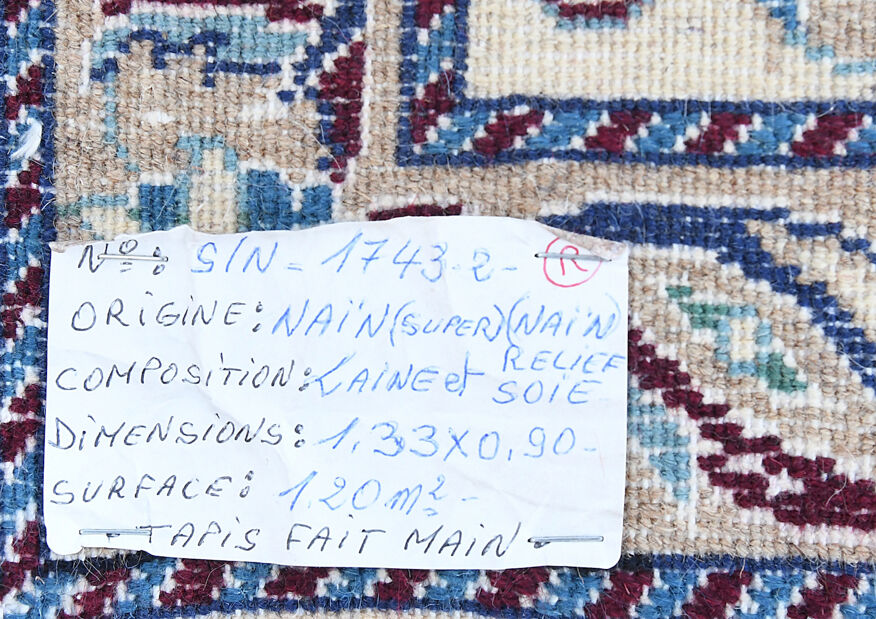 Nº: SIN = 1743-2- R
ORIGINE: NAÏN (SUPER) (NAÏN)
COMPOSITION: LAINE et RELIEF SOIE
DIMENSIONS: 1,33 X 0,90-
SURFACE: 1,20 m² -
- TAPIS FAIT MAIN -